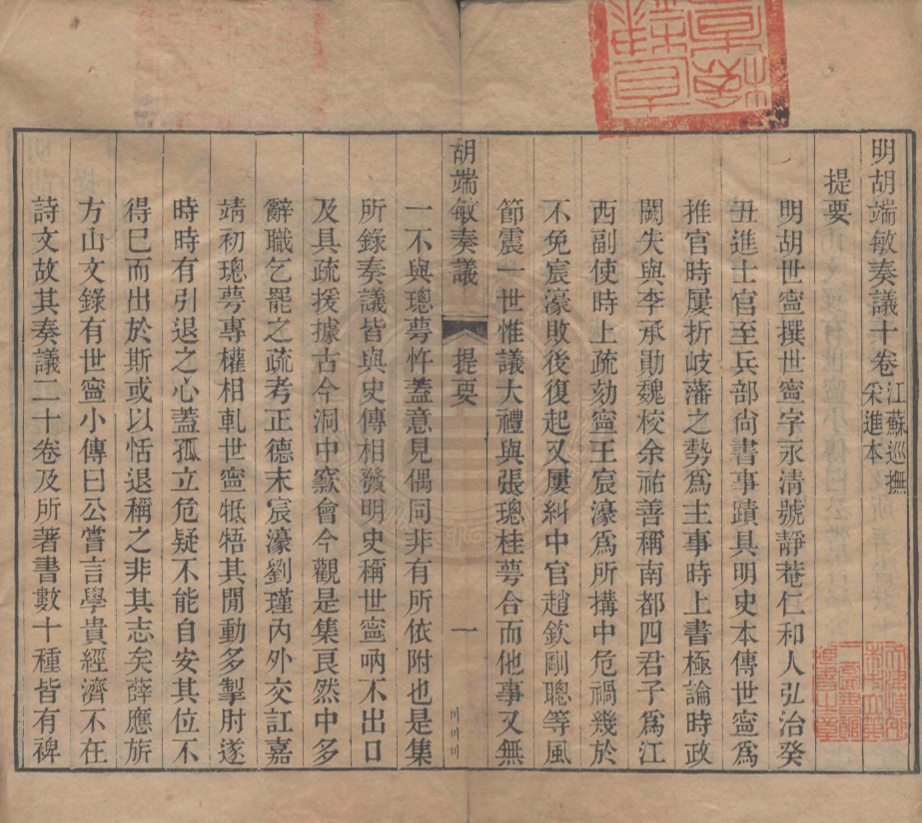 明胡端敏奏議十卷江蘇巡撫采進本
提要
明胡世寧撰世寧字永清號靜菴仁和人弘治癸
丑進士官至兵部尚書事蹟具明史本傳世寧爲
推官時屢折岐藩之勢爲主事時上書極論時政
闕失與李承勛魏校余祐善稱南都四君子爲江
西副使時上疏劾寧王宸濠爲所搆中危禍幾於
不免宸濠敗後復起又屢糾中官趙欽剛聰等風
節震一世惟議大禮與張璁桂萼合而他事又無
胡端敏奏議 提要 一
一不與璁萼忤蓋意見偶同非有所依附也是集
所錄奏議皆與史傳相發明史稱世寧吶不出口
及具疏援據古今洞中窽會今觀是集良然中多
辭職乞罷之疏考正德末宸濠劉瑾內外交訌嘉
靖初璁萼專權相軋世寧牴牾其閒動多掣肘遂
時時有引退之心蓋孤立危疑不能自安其位不
得已而出於斯或以恬退稱之非其志矣薛應旂
方山文錄有世寧小傳曰公嘗言學貴經濟不在
詩文故其奏議二十卷及所著書數十種皆有裨